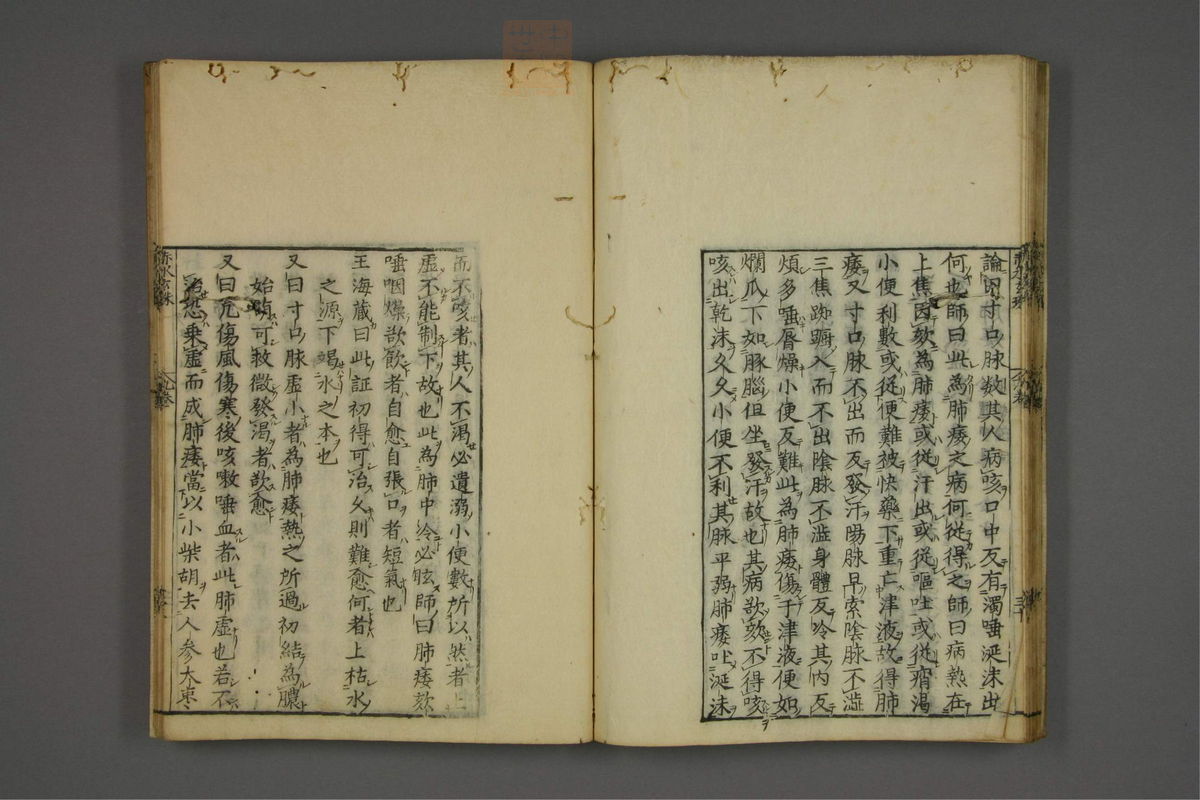 論曰寸口脉数其人病咳口中反有濁唾涎沫出
何也師曰此為肺痿之病何從得之師曰病熱在
上焦因欬為肺痿或從汗出或從嘔吐或從痟渴
小便利數或從便難被快藥下重亡津液故得肺
痿又寸口脉不出而反發汗陽脉早索陰脉不澁
三焦踟蹰入而不出陰脉不澁身體反冷其内反
煩多唾唇燥小便反難此為肺痿傷于津液便如
爛瓜下如豚腦但坐發汗故也其病欲欬不得咳
咳出乾沫久久小便不利其脉平弱肺痿吐涎沫
而不咳者其人不渴必遺溺小便數所以然者上
虚不能制下故也此為肺中冷必眩師曰肺痿欬
唾咽燥欲飲者自愈自張口者短氣也
王海蔵曰此証初得可治久則難愈何者上枯水
之源下竭水之本也
又曰寸口脉虚小者為肺痿熱之所過初結為膿
始萌可救微發渴者欲愈
又曰凢傷風傷寒後咳嗽唾血者此肺虚也若不
治恐乗虚而成肺痿當以小柴胡去人参大棗
赤水玄珠